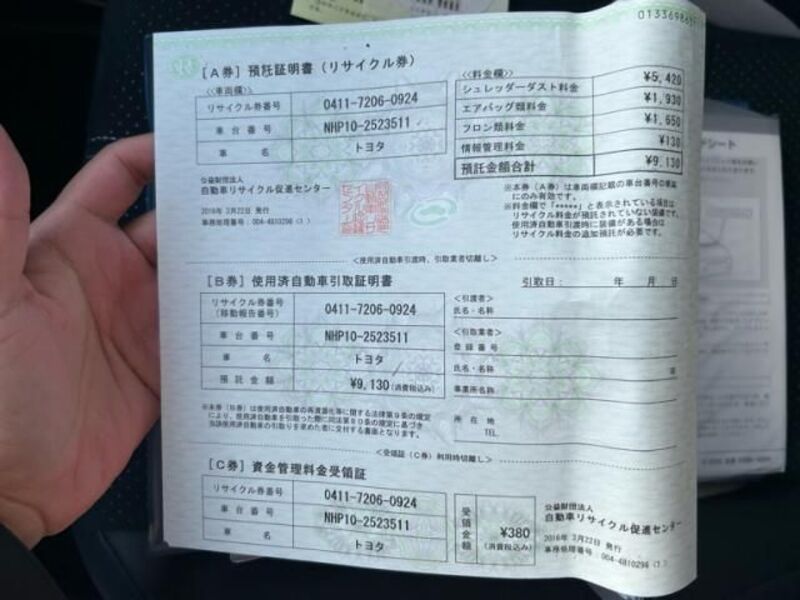 0133698651
[A券] 預託証明書(リサイクル券)
<<車両欄>>
リサイクル券番号 0411-7206-0924
車台番号 NHP10-2523511
車名 トヨタ
<<料金欄>>
シュレッダーダスト料金 ¥5,420
エアバッグ類料金 ¥1,930
フロン類料金 ¥1,650
情報管理料金 ¥130
預託金額合計 ¥9,130
公益財団法人
自動車リサイクル促進センター
2016年 3月22日 発行
事務処理番号:004-4810298(1)
※本券(A券)は車両欄記載の車台番号の車両
にのみ有効です。
※料金欄で「*****」と表示されている場合は
リサイクル料金が預託されていない装備です。
使用済自動車引渡時に装備がある場合は
リサイクル料金の追加預託が必要です。
<使用済自動車引渡時、引取業者切離し>
[B券] 使用済自動車引取証明書
引取日: 年 月 日
リサイクル券番号
(移動報告番号) 0411-7206-0924
車台番号 NHP10-2523511
車名 トヨタ
預託金額 ¥9,130(消費税込み)
<引渡者>
氏名・名称
<引取業者>
登録番号
氏名・名称
事業所名称
所在地
TEL
※本券(B券)は使用済自動車の再資源化等に関する法律第9条の規定
により、使用済自動車を引取った際に同法第80条の規定に基づき
当該使用済自動車の引取りを求めた者に交付する書面となります。
<受領証(C券)利用時切離し>
[C券] 資金管理料金受領証
リサイクル券番号 0411-7206-0924
車台番号 NHP10-2523511
車名 トヨタ
受領金額 ¥380
(消費税込み)
公益財団法人
自動車リサイクル促進センター
2016年 3月22日 発行
事務処理番号:004-4810298(1)